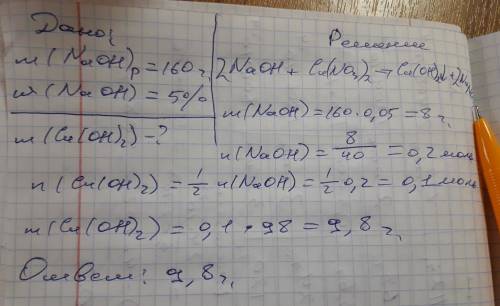 Дано:
m(NaOH)р = 160 г.
ω(NaOH) = 5%
m(Cu(OH)₂) - ?
Решение
2NaOH + Cu(NO₃)₂ → Cu(OH)₂↓ + 2Na
m(NaOH) = 160 · 0,05 = 8 г.
n(NaOH) = 8/40 = 0,2 моль
n(Cu(OH)₂) = 1/2 n(NaOH) = 1/2 0,2 = 0,1 моль
m(Cu(OH)₂) = 0,1 · 98 = 9,8 г.
Ответ: 9,8 г.